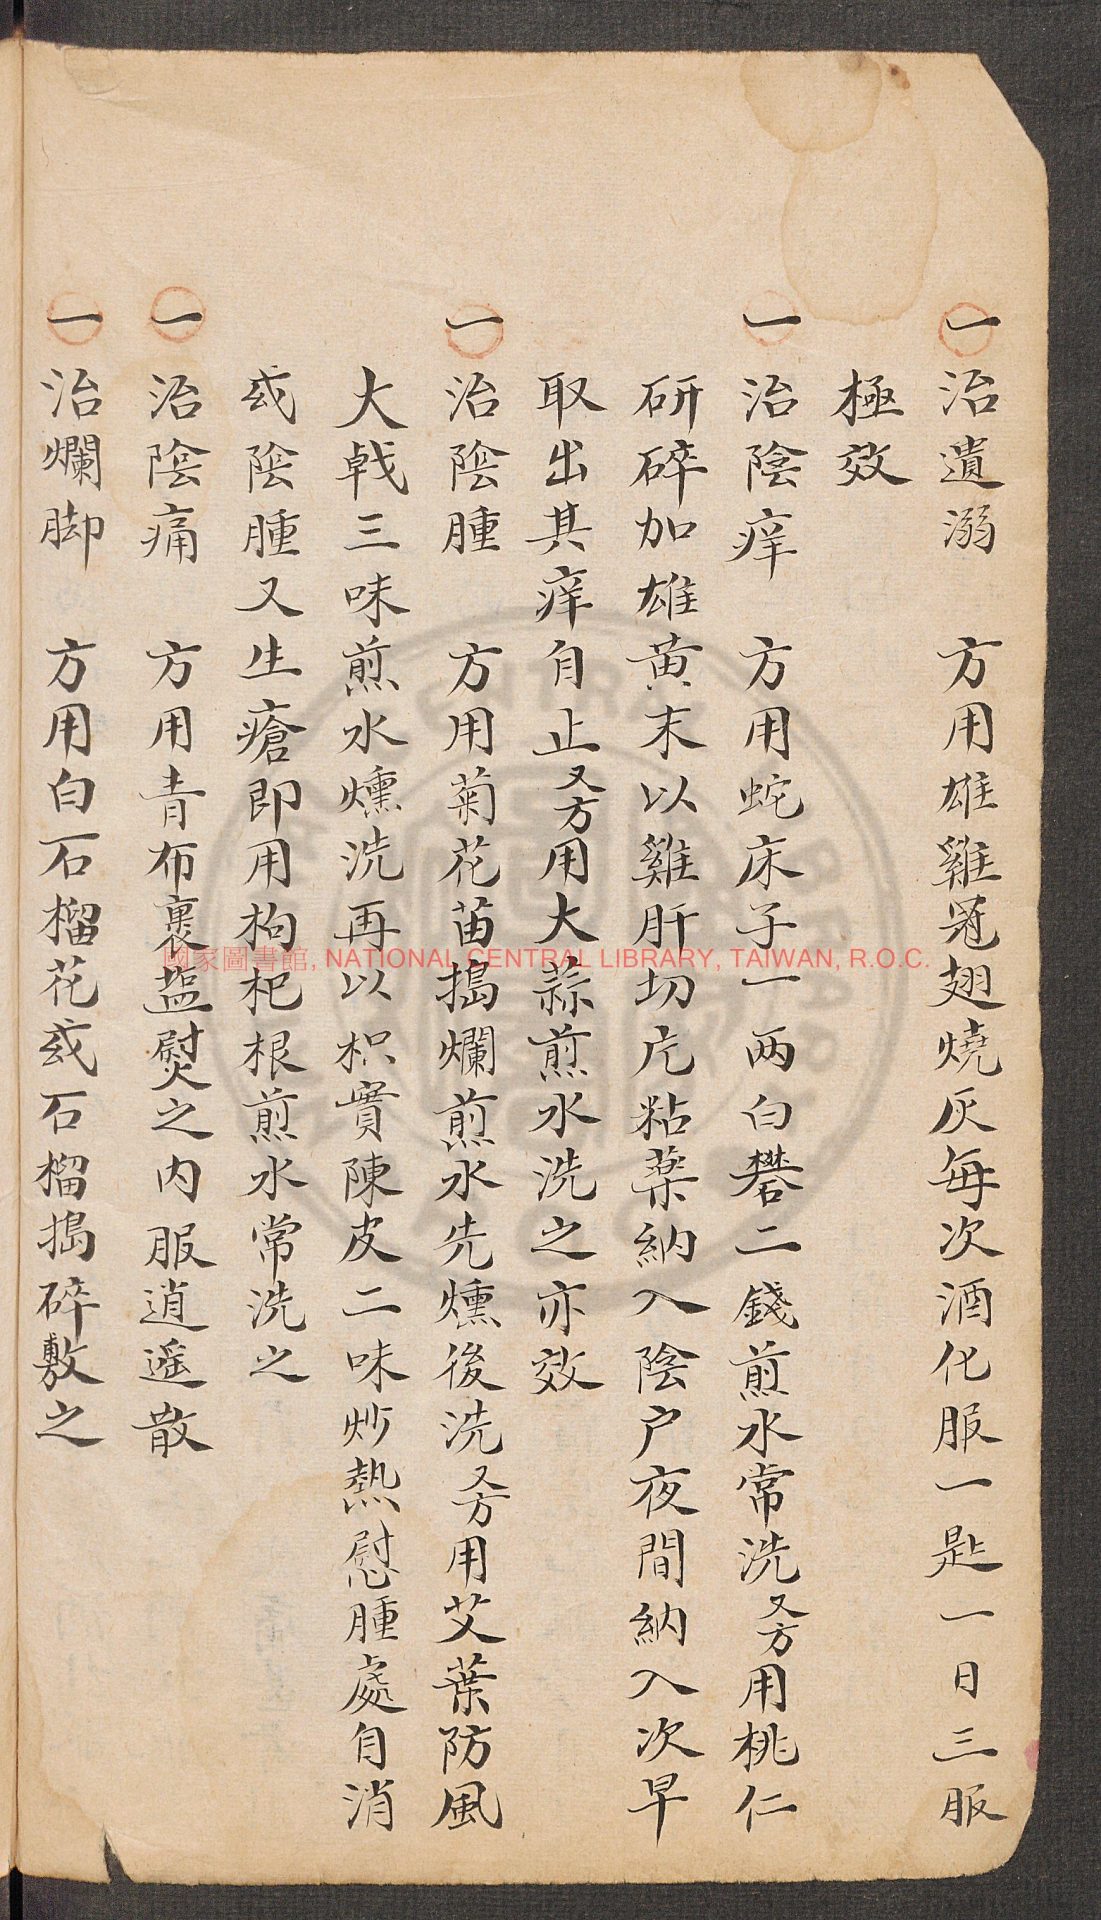 一治遺溺　方用雄雞冠翅燒灰每次酒化服一匙一日三服
極效
一治陰痒　方用蛇床子一両白礬二錢煎水常洗又方用桃仁
研碎加雄黄末以雞肝切片粘藥納入陰户夜間納入次早
取出其痒自止又方用大蒜煎水洗之亦效
一治陰腫　方用菊花苗搗爛煎水先燻後洗又方用艾葉防風
大戟三味煎水燻洗再以枳實陳皮二味炒熱慰腫處自消
或陰腫又生瘡即用枸杞根煎水常洗之
一治陰痛　方用青布裹塩熨之内服逍遥散
一治爛脚　方用白石榴花或石榴搗碎敷之
國家圖書館, NATIONAL CENTRAL LIBRARY, TAIWAN, R.O.C.